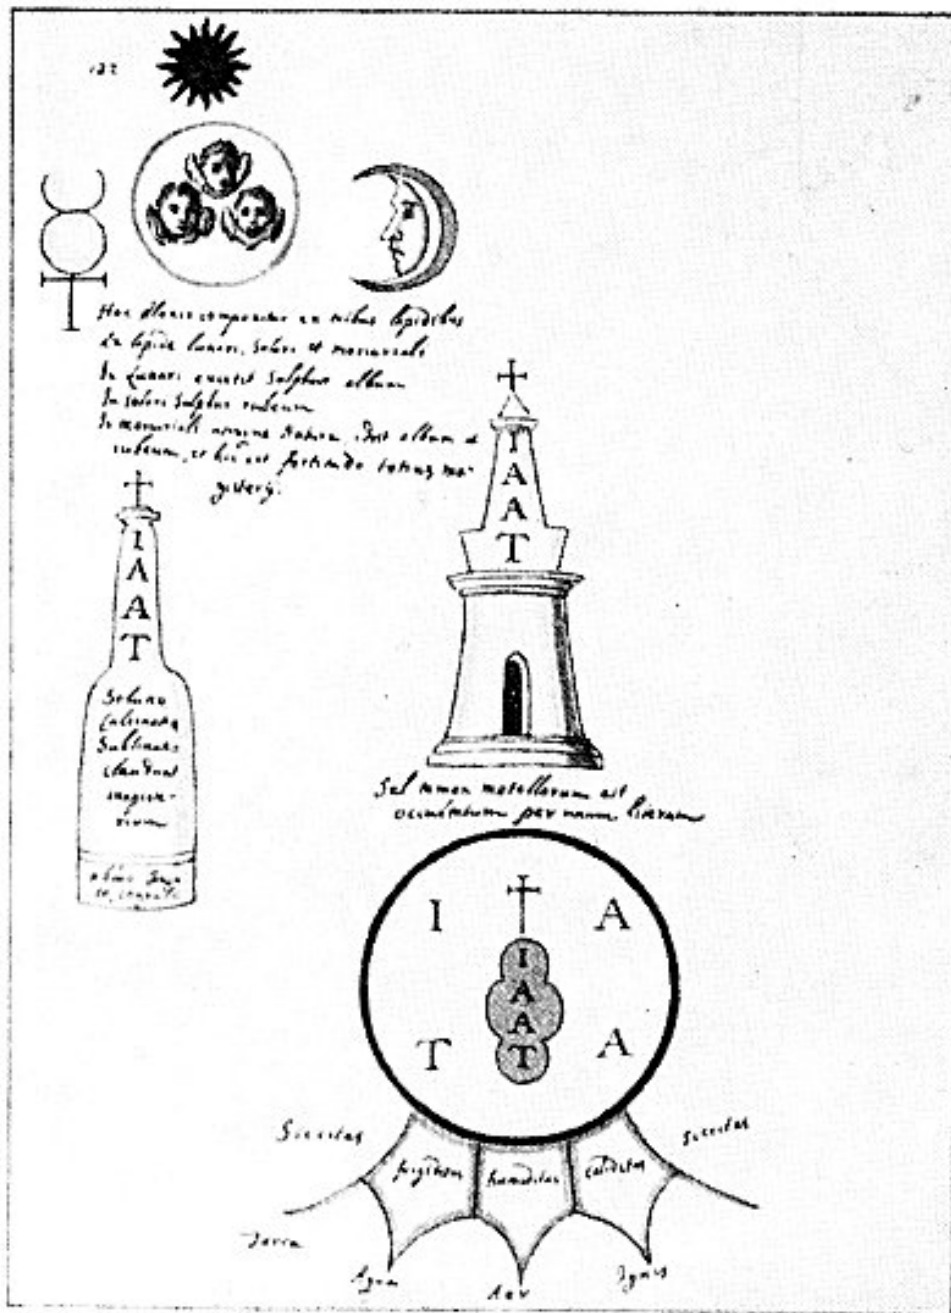 132
compon. ex tribus lapidibus
Ex lapide lunari, solari et mercuriali
In Lunari existit Sulphur album
In solari Sulphur rubeum
In mercuriali natura, idest album et
rubeum, et hic est fortitudo totius ma-
gisterij.
I
A
A
T
I
A
A
T
Solvano
Calcinatq
Sublimato
claudunt
magiste-
rium
Sal metallorum est
occultatum per unam literam
I A
I
A
A
T
T A
Siccitas frigiditas humiditas caliditas siccitas
Terra
Aqua Aer Ignis